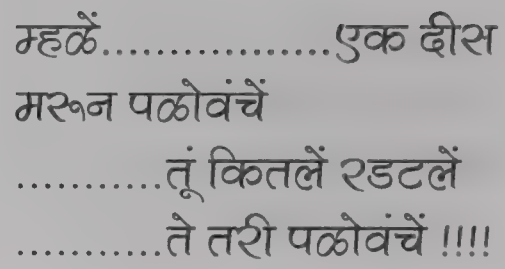 म्हळें.................एक दीस
मरून पळोवंचें
...........तूं कितलें रडटलें
...........ते तरी पळोवंचें !!!!